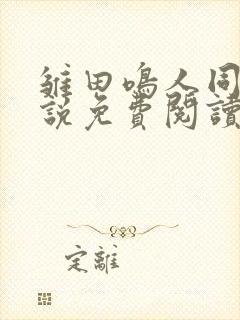 雏田鳴人同
說免費閱讀
定離